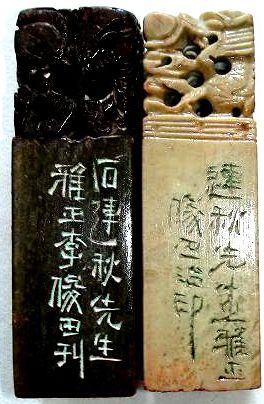 連秋先生雅正
俊田治印
石連秋先生
雅正李俊田刊